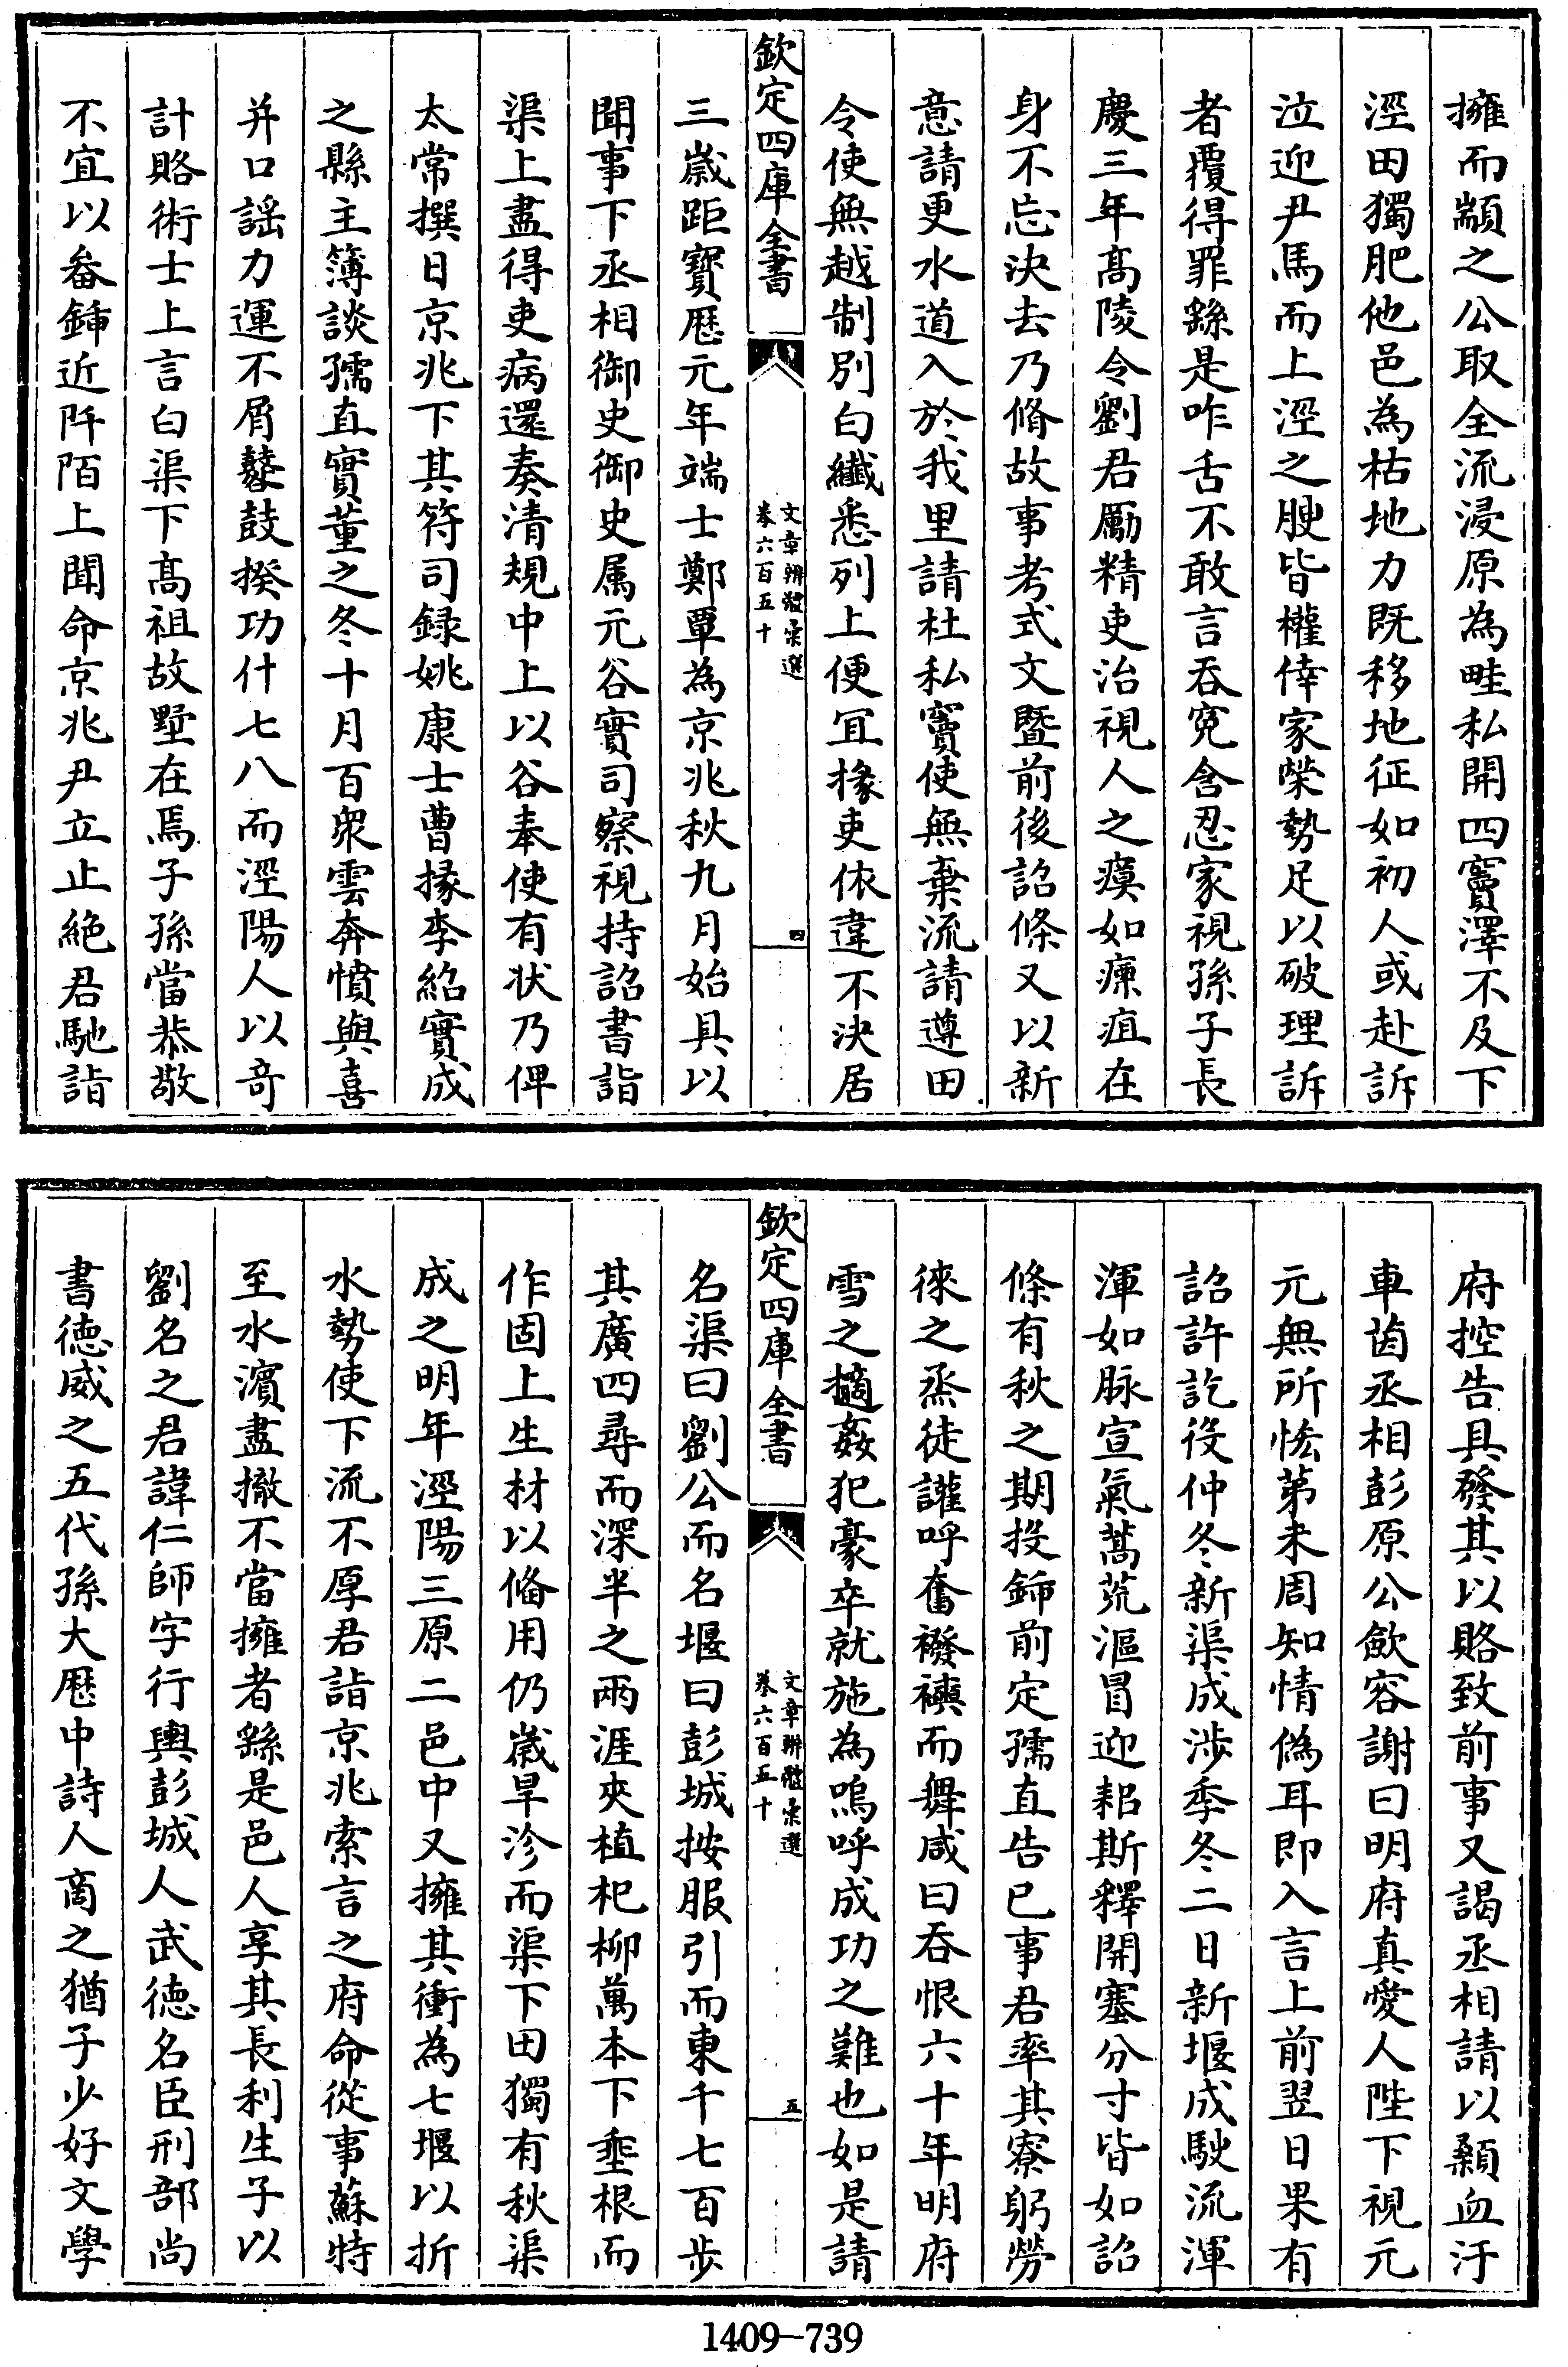 擁而顓之公取全流浸原為畦私開四竇澤不及下
涇田獨肥他邑為枯地力既移地征如初人或赴訴
泣迎尹馬而上涇之腴皆權倖家榮勢足以破理訴
者覆得罪繇是咋舌不敢言吞寃含忍家視孫子長
慶三年髙陵令劉君勵精吏治視人之瘼如瘭疽在
身不忘決去乃脩故事考式文暨前後詔條又以新
意請更水道入於我里請杜私竇使無棄流請遵田
令使無越制別白纖悉列上便宜掾吏依違不決居
欽定四庫全書
文章辨體彙選
卷六百五十
四
三嵗距寳厯元年端士鄭覃為京兆秋九月始具以
聞事下丞相御史御史属元谷實司察視持詔書詣
渠上盡得吏病還奏清規中上以谷奉使有状乃俾
太常撰日京兆下其符司録姚康士曹掾李紹實成
之縣主簿談孺直實董之冬十月百衆雲奔憤與喜
并口謡力運不屑鼛鼓揆功什七八而涇陽人以竒
計賂術士上言白渠下髙祖故墅在焉子孫當恭敬
不宜以畚鍤近阡陌上聞命京兆尹立止絶君馳詣
府控告具發其以賂致前事又謁丞相請以顙血汙
車茵丞相彭原公歛容謝曰明府真愛人陛下視元
元無所恡第未周知情偽耳即入言上前翌日果有
詔許訖役仲冬新渠成涉季冬二日新堰成駛流渾
渾如脉宣氣蒿荒漚冒迎耜斯釋開塞分寸皆如詔
條有秋之期投鍤前定孺直告已事君率其寮躬勞
徠之烝徒讙呼奮襏襫而舞咸曰吞恨六十年明府
雪之擿姦犯豪卒就施為嗚呼成功之難也如是請
欽定四庫全書
文章辨體彙選
卷六百五十
五
名渠曰劉公而名堰曰彭城按服引而東千七百歩
其廣四尋而深半之兩涯夾植杞柳萬本下埀根而
作固上生材以備用仍嵗旱沴而渠下田獨有秋渠
成之明年涇陽三原二邑中又擁其衝為七堰以折
水勢使下流不厚君詣京兆索言之府命從事蘇特
至水濵盡撤不當擁者繇是邑人享其長利生子以
劉名之君諱仁師字行輿彭城人武徳名臣刑部尚
書徳威之五代孫大厯中詩人商之猶子少好文學
1409-739